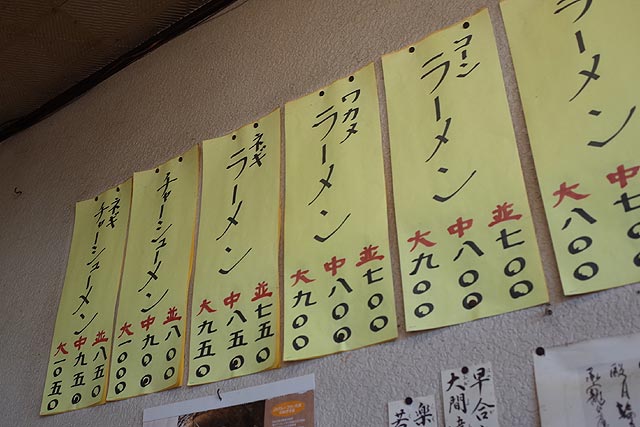 ラーメン
中七
大八〇〇
コーン
ラーメン
並七〇〇
中八〇〇
大九〇〇
ワカメ
ラーメン
並七〇〇
中八〇〇
大九〇〇
ネギ
ラーメン
並七五〇
中八五〇
大九五〇
チャーシューメン
並八〇〇
中九〇〇
大一〇〇〇
ネギ
チャーシューメン
並八五〇
中九五〇
大一〇五〇
早合
大間
楽
若